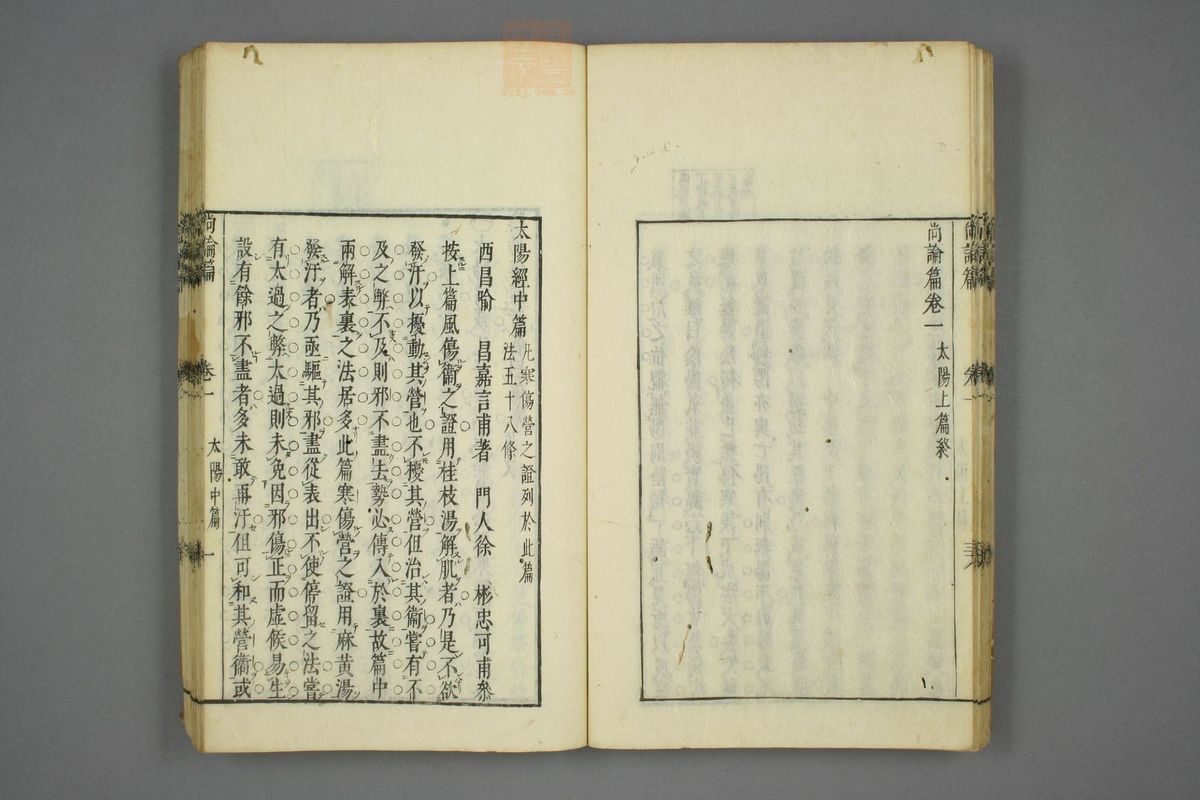 尚論篇
卷一
尚論篇卷一 太陽上篇終
太陽經中篇 凡寒傷營之證列於此篇
法五十八條
西昌喻 昌嘉言甫著 門人徐 彬忠可甫叅
按上篇風傷衞之證用桂枝湯解肌者乃是不欲
發汗以擾動其營也不擾其營但治其衞嘗有不
及之弊不及則邪不盡去勢必傳入於裏故篇中
兩解表裏之法居多此篇寒傷營之證用麻黃湯
發汗者乃亟驅其邪盡從表出不使停留之法嘗
有太過之弊太過則未免因邪傷正而虛候易生
設有餘邪不盡者多未敢再汗但可和其營衞或
尚論篇 卷一 太陽中篇 一
zysj.com.cn